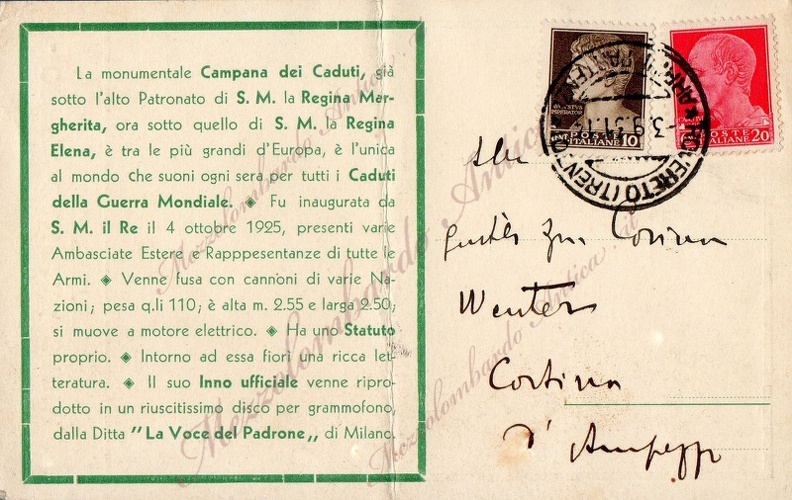 La monumentale Campana dei Caduti, già
sotto l'alto Patronato di S. M. la Regina Mar-
gherita, ora sotto quello di S. M. la Regina
Elena, è tra le più grandi d'Europa, è l'unica
al mondo che suoni ogni sera per tutti i Caduti
della Guerra Mondiale. ◈ Fu inaugurata da
S. M. il Re il 4 ottobre 1925, presenti varie
Ambasciate Estere e Rapppesentanze di tutte le
Armi. ◈ Venne fusa con cannoni di varie Na-
zioni; pesa q.li 110; è alta m. 2.55 e larga 2.50;
si muove a motore elettrico. ◈ Ha uno Statuto
proprio. ◈ Intorno ad essa fiorì una ricca let-
teratura. ◈ Il suo Inno ufficiale venne ripro-
dotto in un riuscitissimo disco per grammofono,
dalla Ditta "La Voce del Padrone„ di Milano.
POSTE
ITALIANE 10
POSTE
ITALIANE 20
ROVERETO (TRENTO)
3.9.31
Corinna
Cortina
d'Ampezzo
Mezzolombardo Antica .it
Mezzolombardo Antica .it
Mezzolombardo Antica .it